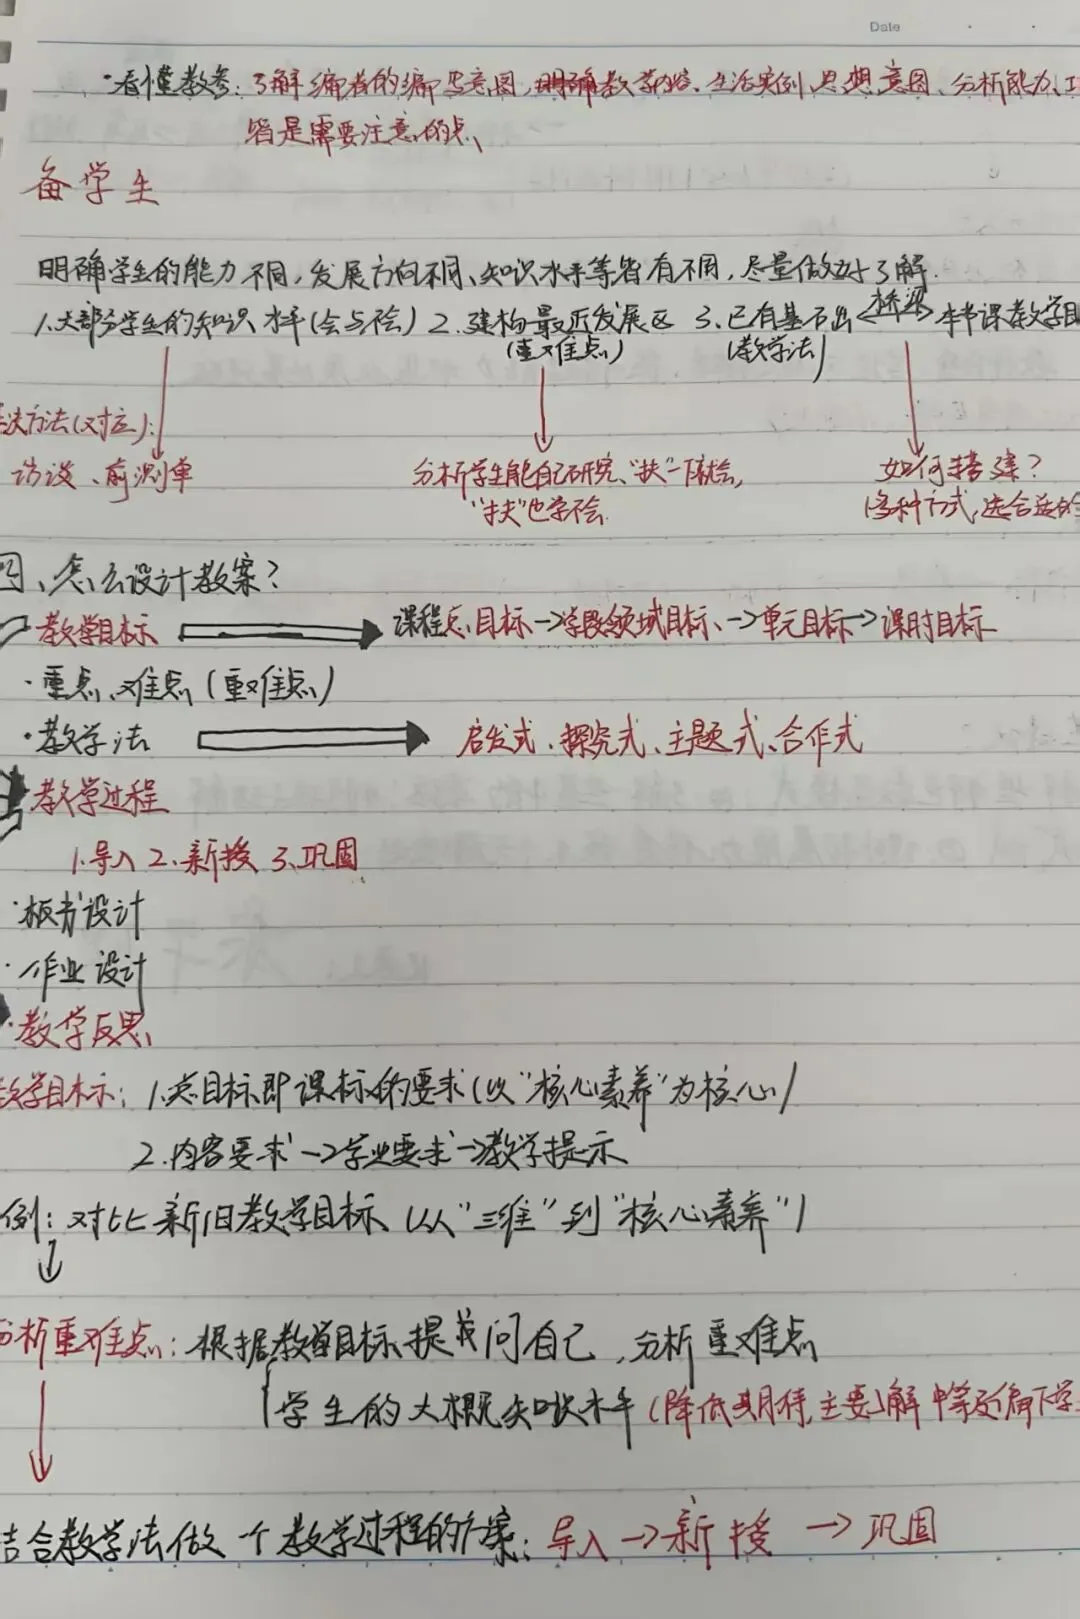 Date
·看懂教参:了解编者的编写意图,明确教学内容、生活实例、思想意图、分析能力、
皆是需要注意的点、
备学生
明确学生的能力不同,发展方向不同、知识水平等皆有不同,尽量做好了解.
1.大部分学生的知识水平(会与不会) 2.建构最近发展区 3.已有基石出<桥梁>本节课教学目
(重难点) (教学法)
决方法(对应):
访谈、前测单 分析学生能自己研究、“扶”一下就会, 如何搭建?
“扶”也学不会. 多种方式,选合适的
四、怎么设计教案?
教学目标 课程总目标→学段领域目标、→单元目标→课时目标
·重点、难点(重难点)
·教学法 启发式、探究式、主题式、合作式
教学过程
1.导入 2.新授 3.巩固
·板书设计
·作业设计
·教学反思
教学目标: 1.总目标即课标的要求(以“核心素养”为核心)
2.内容要求→学业要求→教学提示
例:对比新旧教学目标、(从“三维”到“核心素养”)
分析重难点:根据教学目标提我问自己,分析重难点
学生的大概知识水平(降低期待,主要了解中等及偏下学
结合教学法做一个教学过程的方案:导入→新授→巩固